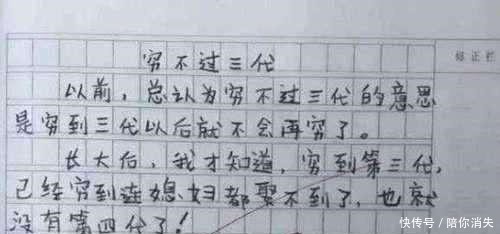 穷不过三代
修正栏
以前，总认为穷不过三代的意思
是穷到三代以后就不会再穷了。
长大后，我才知道，穷到第三代，
已经穷到连媳妇都娶不到了，也就
没有第四代了！
快传号/陪你消失